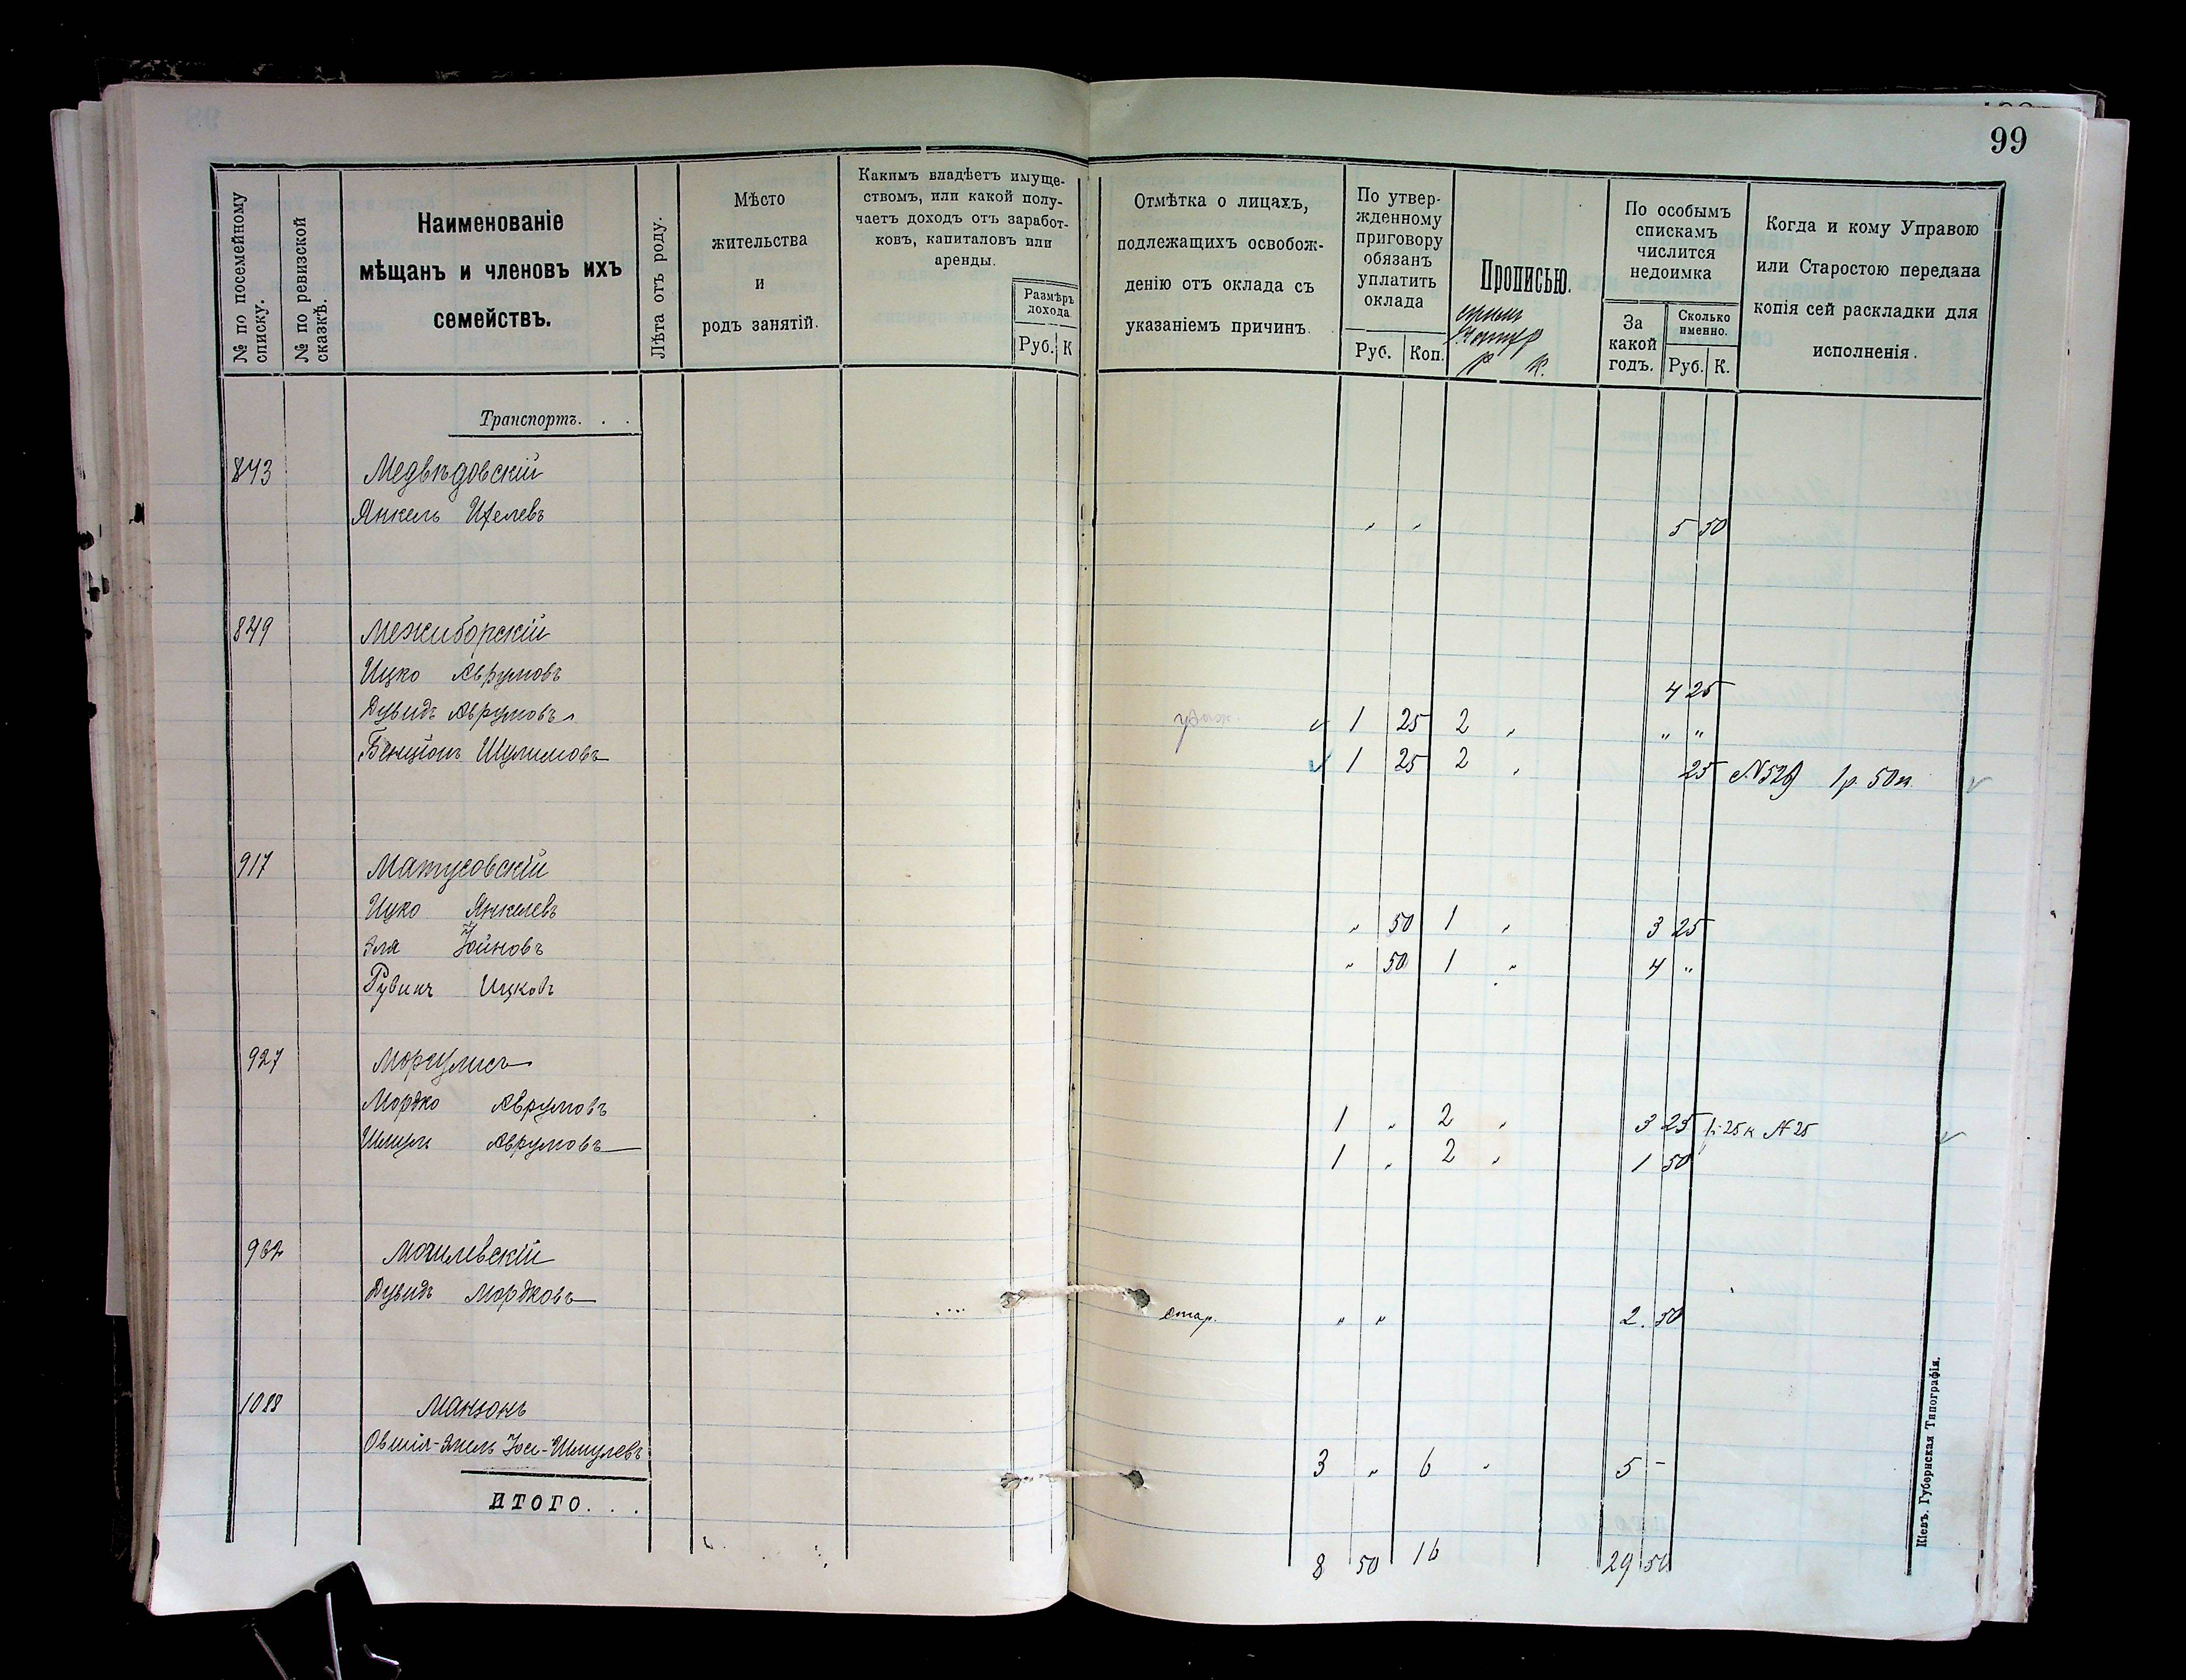 99
№ по посемейному списку.
№ по ревизской сказкѣ.
Наименованіе
мѣщанъ и членовъ ихъ
семействъ.
Лѣта отъ роду.
Мѣсто
жительства
и
родъ занятій.
Какимъ владѣетъ имуще-
ствомъ, или какой полу-
чаетъ доходъ отъ заработ-
ковъ, капиталовъ или
аренды.
Размѣръ
дохода.
Руб. К
Отмѣтка о лицахъ,
подлежащихъ освобож-
денію отъ оклада съ
указаніемъ причинъ.
По утвер-
жденному
приговору
обязанъ
уплатить
оклада
Руб. Коп.
Прописью.
р к.
По особымъ
спискамъ
числится
недоимка
За
какой
годъ.
Сколько
именно.
Руб. К.
Когда и кому Управою
или Старостою передана
копія сей раскладки для
исполненія.
Транспортъ. . .
843 Медвѣдовскій
Янкель " " 5 50
849 Межиборскій
Ицко Аврумовъ 4 25
Дувидъ Аврумовъ 1 25 2 " " "
Бенціонъ Шулимовъ 1 25 2 " 25 №529 1р. 50к.
917 Матусовскій
Ицко Янкелевъ " 50 1 " 3 25
Эля Іойновъ " 50 1 " 4 "
Рувинъ Ицковъ
927 Моргулисъ
Мордко Аврумовъ 1 " 2 " 3 25 1р 25к №25
Шмуль Аврумовъ 1 " 2 " 1 50
962 Могилевскій
Дувидъ Мордковъ стар. " " 2. 50
1088 Манзонъ
Овшія-Эмель Іос-Шмулевъ 3 " 6 " 5 -
ИТОГО. . .
8 50 16 29 50
Кіевъ. Губернская Типографія.